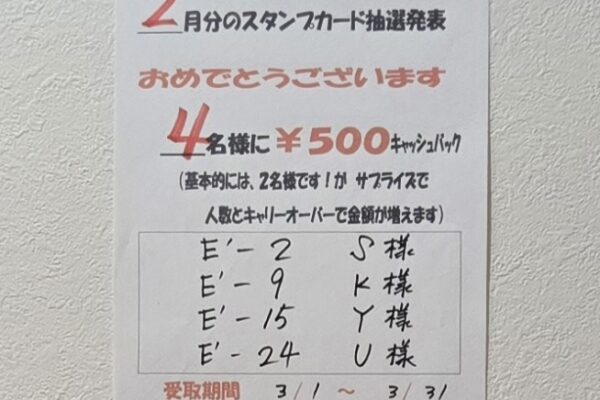 2月分のスタンプカード抽選発表
おめでとうございます
4名様に￥500キャッシュバック
(基本的には、2名様です!が サプライズで
人数とキャリーオーバーで金額が増えます)
E'-2 S様
E'-9 K様
E'-15 Y様
E'-24 U様
受取期間 3/1 ～ 3/31